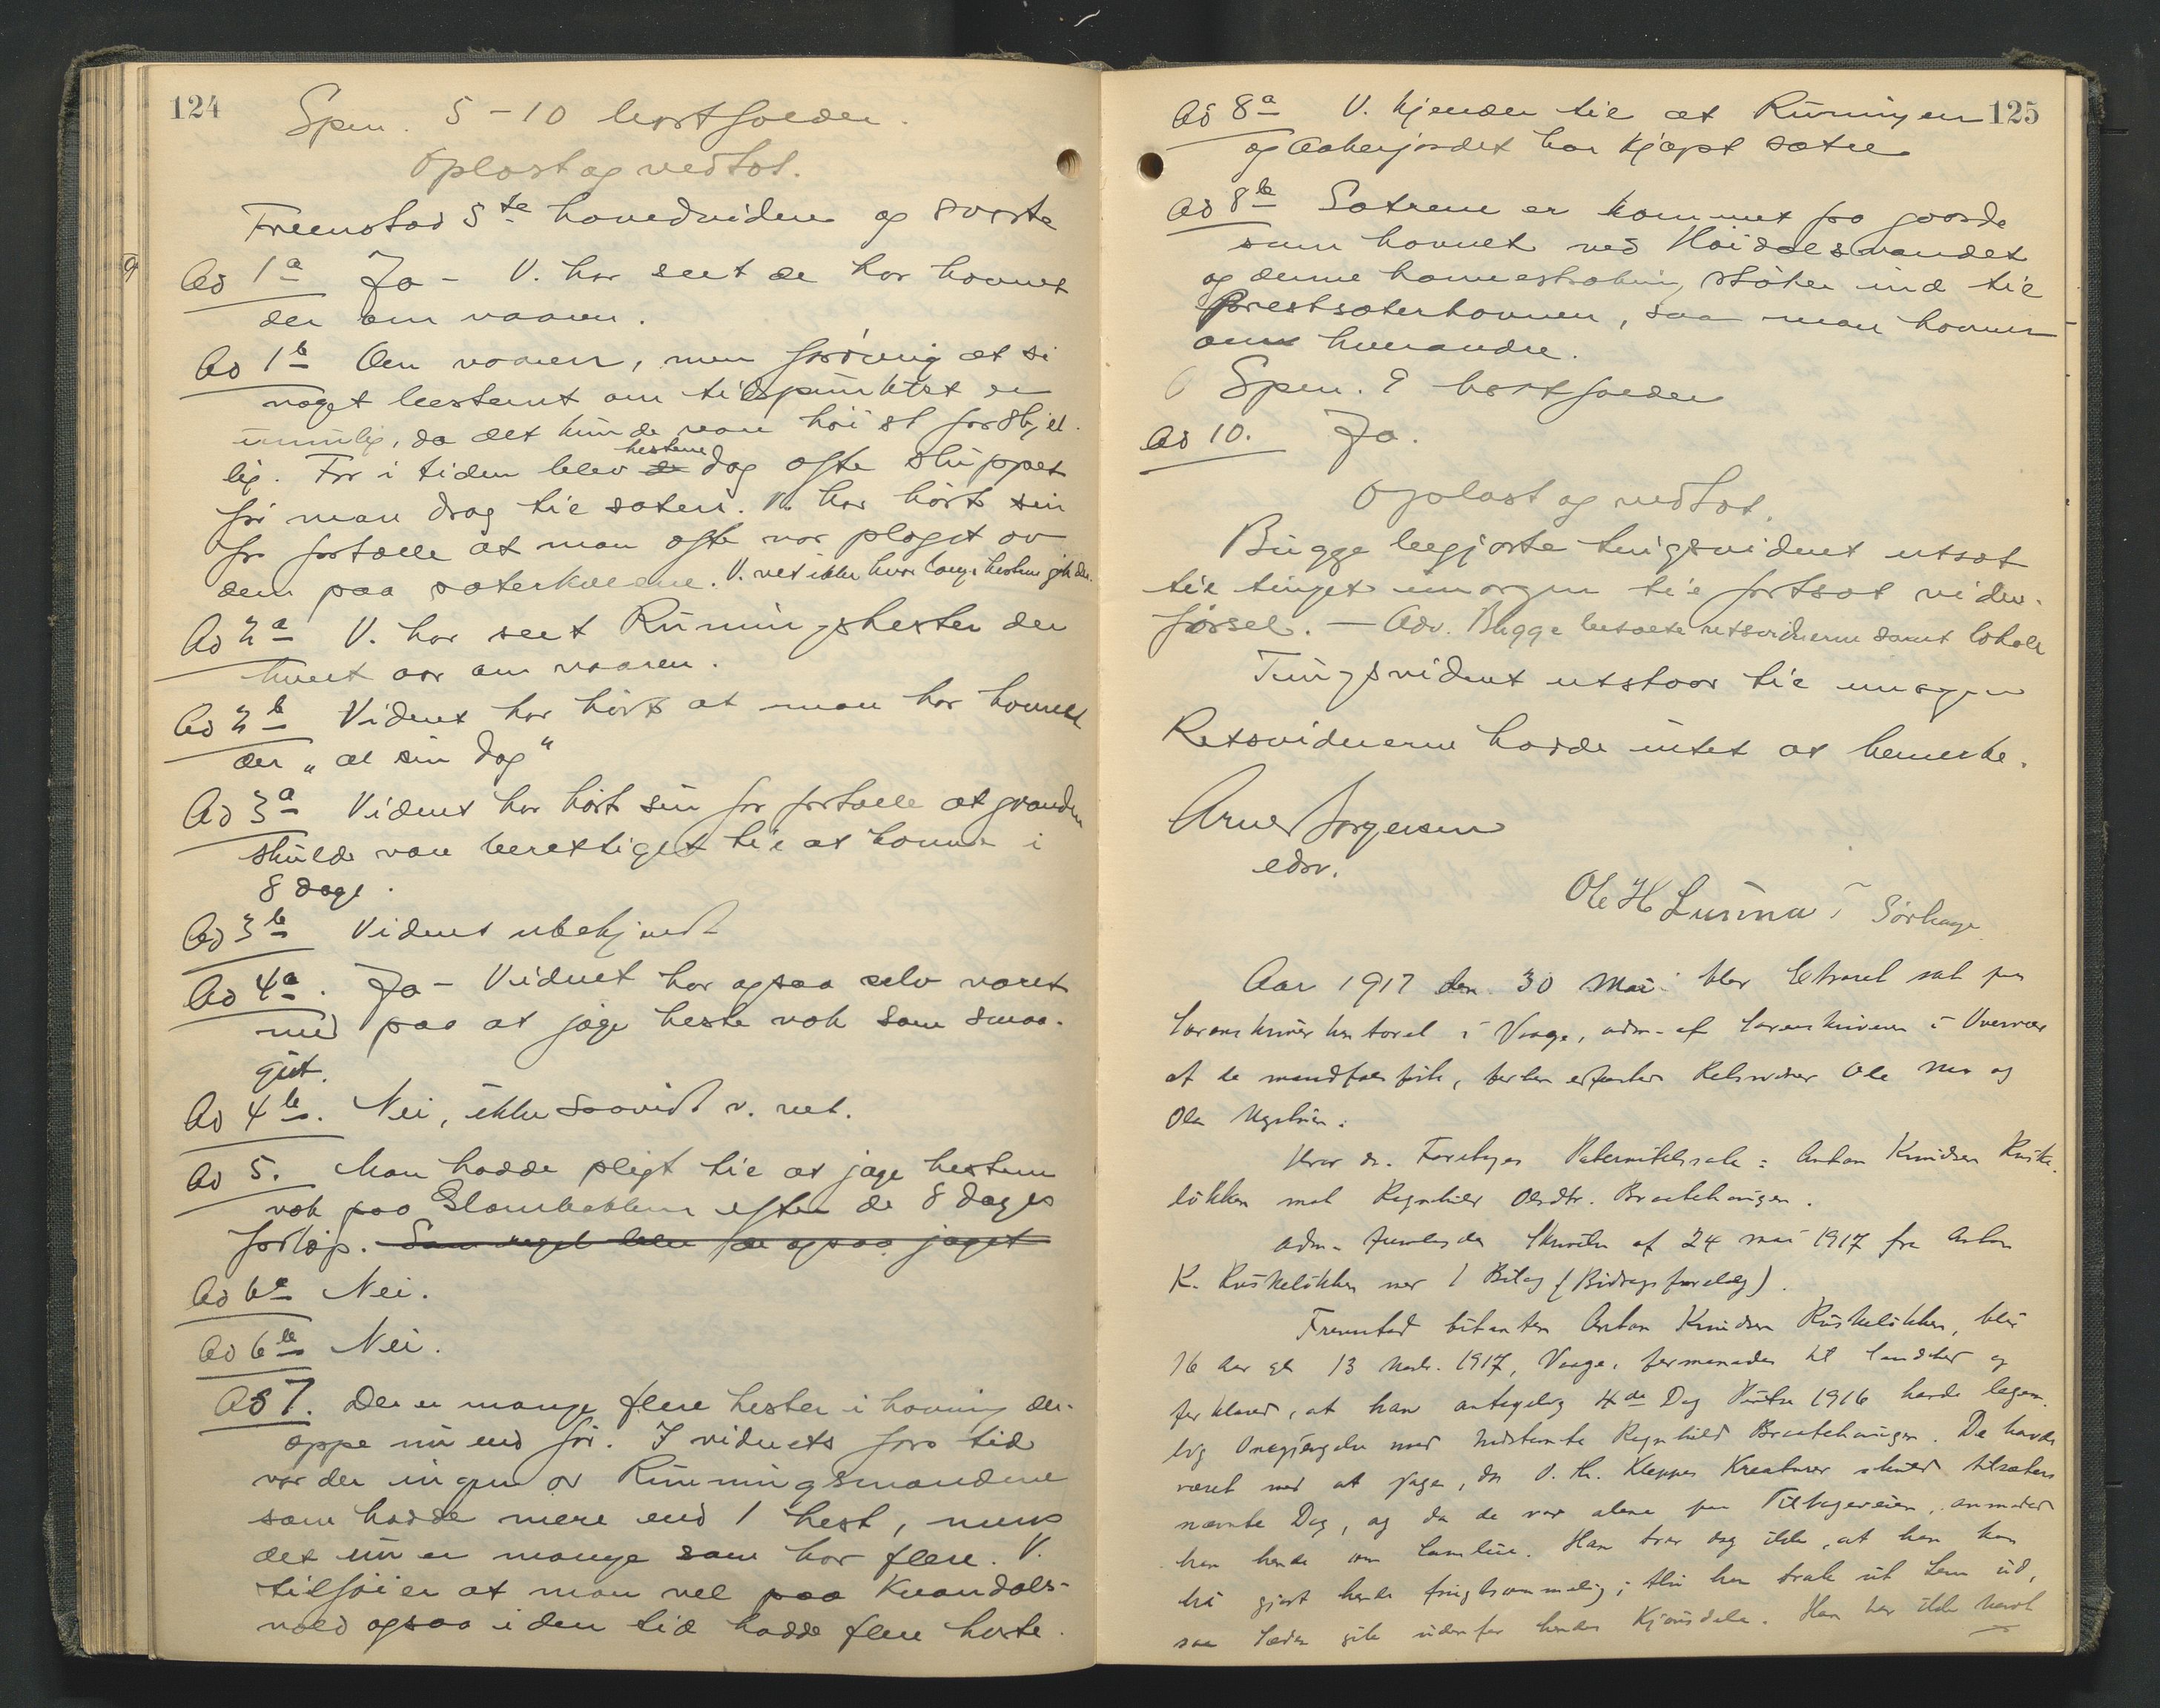 124
Spm. 5-10 bortfalder.
Oplæst og vedtat.
Fremstod 5te hovedvidne og svarte
Ad 1a Ja - V. har seet de har havnet
der om vaaren.
Ad 1b Om vaaren, men forøvrig at si
noget bestemt om tidspunktet er
umulig, da det kunde være høist forskjel-
lig. Før i tiden blev hestene dog ofte sluppet
før man drog til sæters. V. har hørt sin
far fortælle at man ofte var plaget av
dem paa sæterkvelene. V. vet ikke hvor længe hestene gik der.
Ad 2a V. har seet Rumingshester der
hvert aar om vaaren.
Ad 2b Vidnet har hørt at man har havnet
der „al sin dag“
Ad 3a Vidnet har hørt sin far fortælle at granden
skulde være berettiget til at havne i
8 dage.
Ad 3b Vidnet ubekjendt
Ad 4a. Ja - Vidnet har ogsaa selv været
med paa at jage heste væk som smaa-
gut.
Ad 4b. Nei, ikke saavidt v. vet.
Ad 5. Man hadde pligt til at jage hestene
væk paa Slombekken efter de 8 dages
forløp. Som regel blev de ogsaa jaget
Ad 6a Nei.
Ad 6b Nei.
Ad 7. Der er mange flere hester i havning der-
oppe nu end før. I vidnets fars tid
var der ingen av Rumingsmændene
som hadde mere end 1 hest, mens
det nu er mange som har flere. V.
tilføier at man vel paa Kvandals-
vold ogsaa i den tid hadde flere heste.
125
Ad 8a V. kjender til at Rumingen
og Aakerjordet har kjøpt sætre
Ad 8b Sætrene er kommet fra gaarde
som havnet ved Høidalsvandet
og denne havnestrækning støter ind til
Prestsæterhavnen, saa man havner
om hverandre.
Spm. 9 bortfalder
Ad 10. Ja.
Oplæst og vedtat.
Bugge begjærte tingsvidnet utsat
til tinget imorgen til fortsat vidne-
førsel. — Adv. Bugge betalte retsvidnerne samt lokale
Tingsvidnet utstaar til imorgen
Retsvidnerne hadde intet at bemerke.
Arne Jørgensen
edsv.
Ole H Lusmu Sørhage
Aar 1917 den 30 Mai blev Extraret sat paa
Sorenskriverkontoret i Vaage, adm. af Sorenskriveren i Overvær
af de mandtalsførte, forhen edfæstede Retsvidner Ole Mo og
Ola Nystuen.
Hvor da. Foretoges Paternitetssak: Anton Knudsen Ruske-
løkken mot Ragnhild Olsdtr. Braatehaugen.
Adm. fremlagde Skrivelse af 24 mai 1917 fra Anton
K. Ruskeløkken med 1 Bilag (Bidragsforelæg).
Fremstod citanten Anton Knudsen Ruskeløkken, blir
16 Aar gl 13 Novbr. 1917, Vaage, formanedes til Sandhed og
forklared, at han antagelig 4de Dag Pintse 1916 havde legem-
lig Omgjængelse med Indstevnte Ragnhild Braatehaugen. De havde
været med at jage, da O. Kr. Kleppes Kreaturer skulde tilsæters
nævnte Dag, og da de var alene paa Tilbageveien, anmoded
han hende om Samleie. Han tror dog ikke, at han kan
ha gjort hende frugtsommelig; thi han trak ut Lem ud,
saa Sæden gik udenfor hendes Kjønsdele. Han har ikke havt